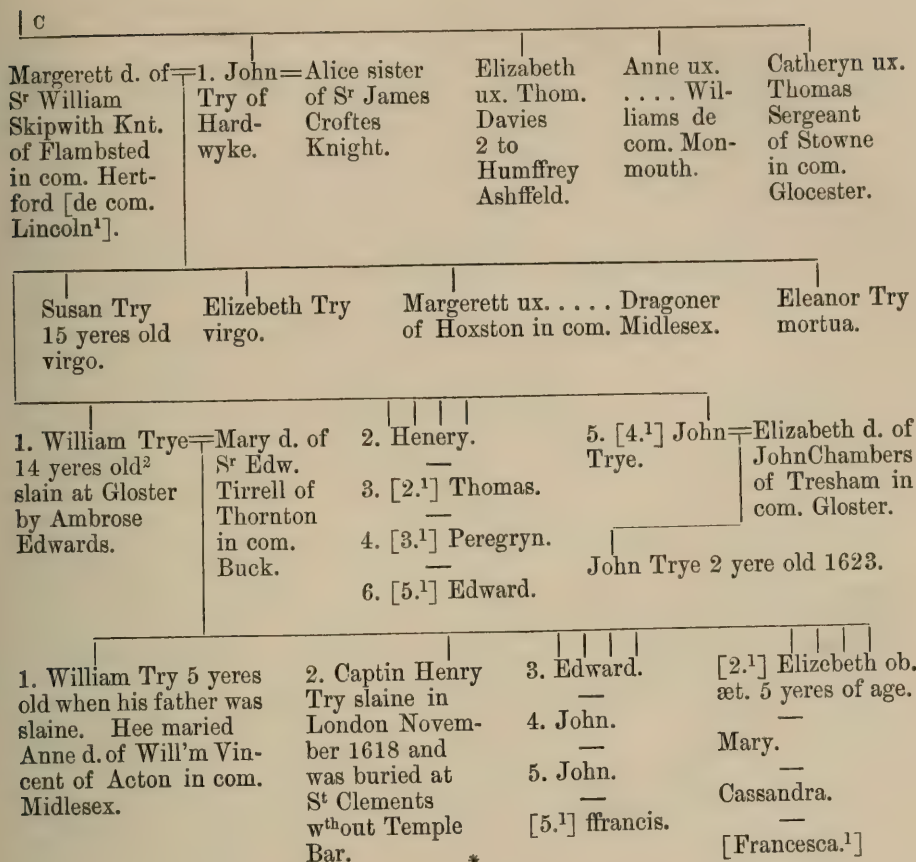 C
Margerett d. of
Sʳ William
Skipwith Knt.
of Flambsted
in com. Hert-
ford [de com.
Lincoln¹].
1. John
Try of
Hard-
wyke.
Alice sister
of Sʳ James
Croftes
Knight.
Elizabeth
ux. Thom.
Davies
2 to
Humffrey
Ashffeld.
Anne ux.
. . . . Wil-
liams de
com. Mon-
mouth.
Catheryn ux.
Thomas
Sergeant
of Stowne
in com.
Glocester.
Susan Try
15 yeres old
virgo.
Elizebeth Try
virgo.
Margerett ux. . . . . . Dragoner
of Hoxston in com. Midlesex.
Eleanor Try
mortua.
1. William Trye
14 yeres old²
slain at Gloster
by Ambrose
Edwards.
Mary d. of
Sʳ Edw.
Tirrell of
Thornton
in com.
Buck.
2. Henery.
—
3. [2.¹] Thomas.
—
4. [3.¹] Peregryn.
—
6. [5.¹] Edward.
5. [4.¹] John
Trye.
Elizabeth d. of
JohnChambers
of Tresham in
com. Gloster.
John Trye 2 yere old 1623.
1. William Try 5 yeres
old when his father was
slaine. Hee maried
Anne d. of Will'm Vin-
cent of Acton in com.
Midlesex.
2. Captin Henry
Try slaine in
London Novem-
ber 1618 and
was buried at
Sᵗ Clements
wᵗʰout Temple
Bar. *
3. Edward.
—
4. John.
—
5. John.
—
[5.¹] ffrancis.
[2.¹] Elizebeth ob.
æt. 5 yeres of age.
—
Mary.
—
Cassandra.
—
[Francesca.¹]